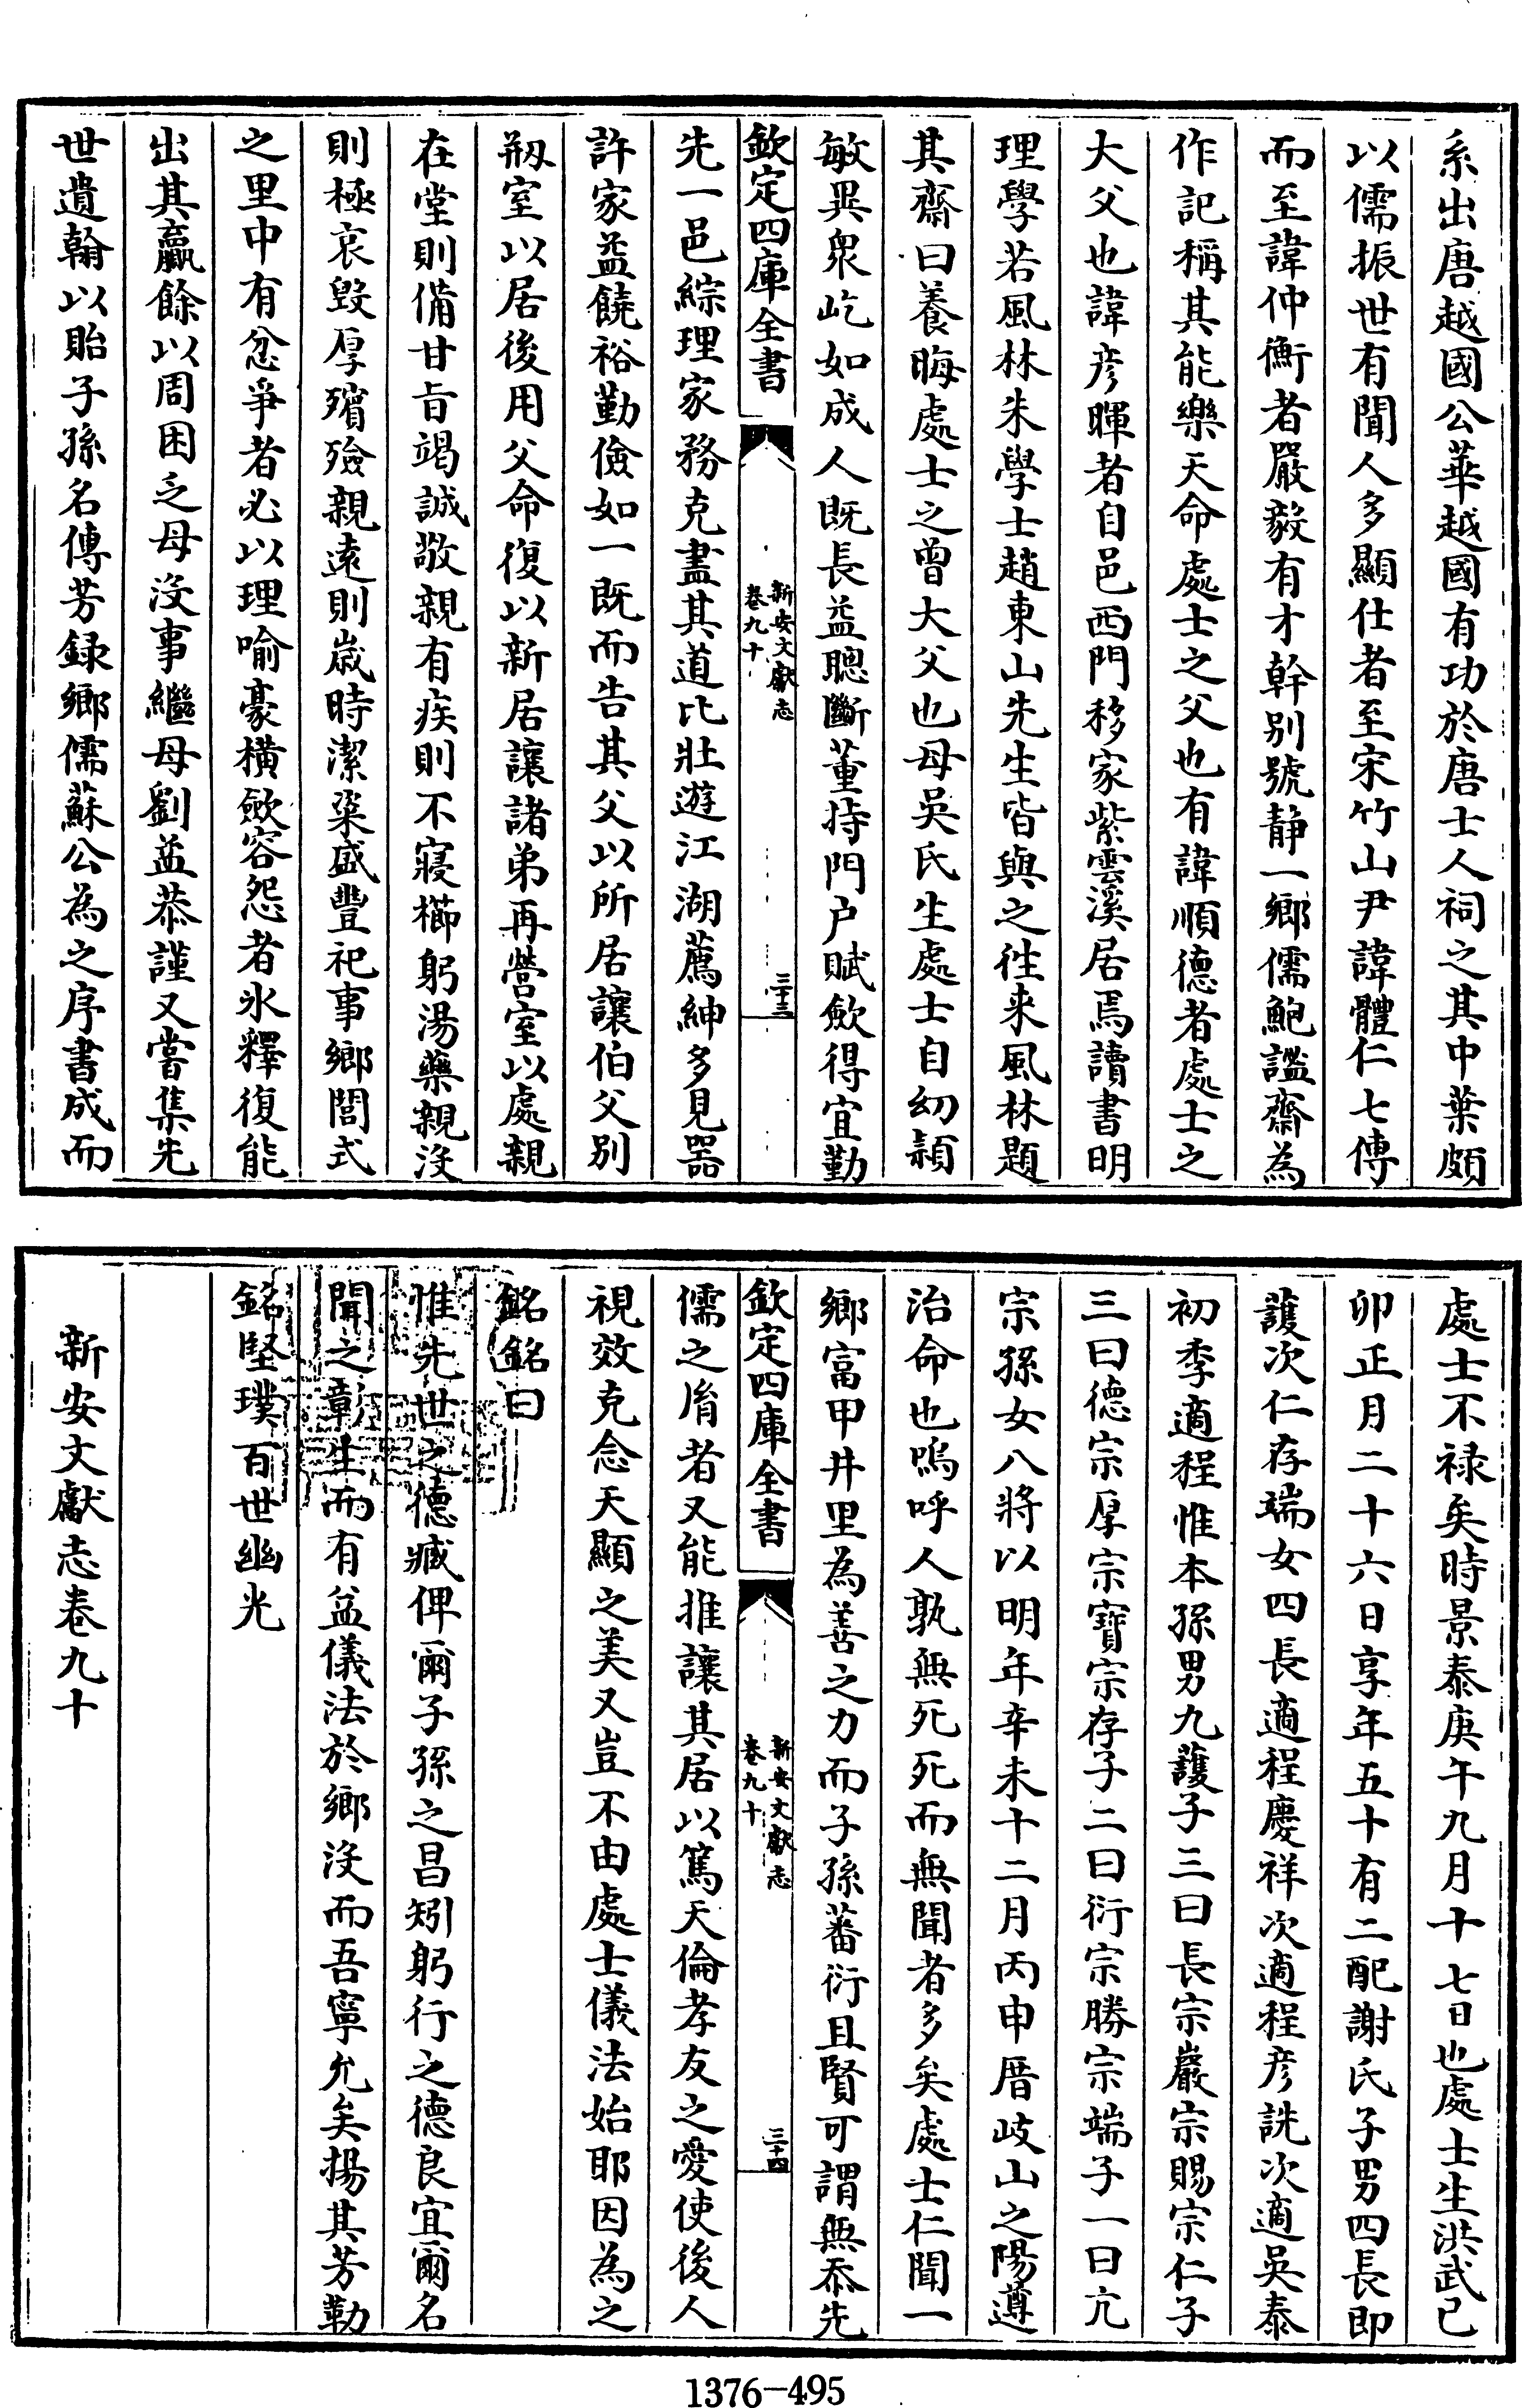 系出唐越國公華越國有功於唐士人祠之其中葉頗
以儒振世有聞人多顯仕者至宋竹山尹諱體仁七傳
而至諱仲衡者嚴毅有才幹别號静一鄉儒鮑謐齋為
作記稱其能樂天命處士之父也有諱順德者處士之
大父也諱彦暉者自邑西門移家紫雲溪居焉讀書明
理學若風林朱學士趙東山先生皆與之徃来風林題
其齋曰養晦處士之曾大父也母吳氏生處士自幼穎
敏異衆屹如成人既長益聰斷董持門户賦歛得宜勤
欽定四庫全書
新安文獻志
卷九十
三十三
先一邑綜理家務克盡其道比壯遊江湖薦紳多見器
許家益饒裕勤儉如一既而告其父以所居讓伯父别
剏室以居後用父命復以新居讓諸弟再營室以處親
在堂則備甘旨竭誠敬親有疾則不寢櫛躬湯藥親没
則極哀毁厚殯殮親遠則歲時潔粢盛豐祀事鄉閭式
之里中有忿爭者必以理喻豪横歛容怨者氷釋復能
出其贏餘以周困乏母没事繼母劉益恭謹又嘗集先
世遺翰以貽子孫名傳芳録鄉儒蘇公為之序書成而
處士不禄矣時景泰庚午九月十七日也處士生洪武己
卯正月二十六日享年五十有二配謝氏子男四長即
護次仁存端女四長適程慶祥次適程彦詵次適吳泰
初季適程惟本孫男九護子三曰長宗巖宗賜宗仁子
三曰德宗厚宗寳宗存子二曰衍宗勝宗端子一曰亢
宗孫女八將以明年辛未十二月丙申厝岐山之陽遵
治命也嗚呼人孰無死死而無聞者多矣處士仁聞一
鄉富甲井里為善之力而子孫蕃衍且賢可謂無忝先
欽定四庫全書
新安文獻志
卷九十
三十四
儒之胄者又能推讓其居以篤天倫孝友之愛使後人
視效克念天顯之美又豈不由處士儀法始耶因為之
銘銘曰
惟先世之德臧俾爾子孫之昌矧躬行之德良宜爾名
聞之彰生而有益儀法於鄉没而吾寧允矣揚其芳勒
銘堅璞百世幽光
新安文獻志卷九十
1376-495